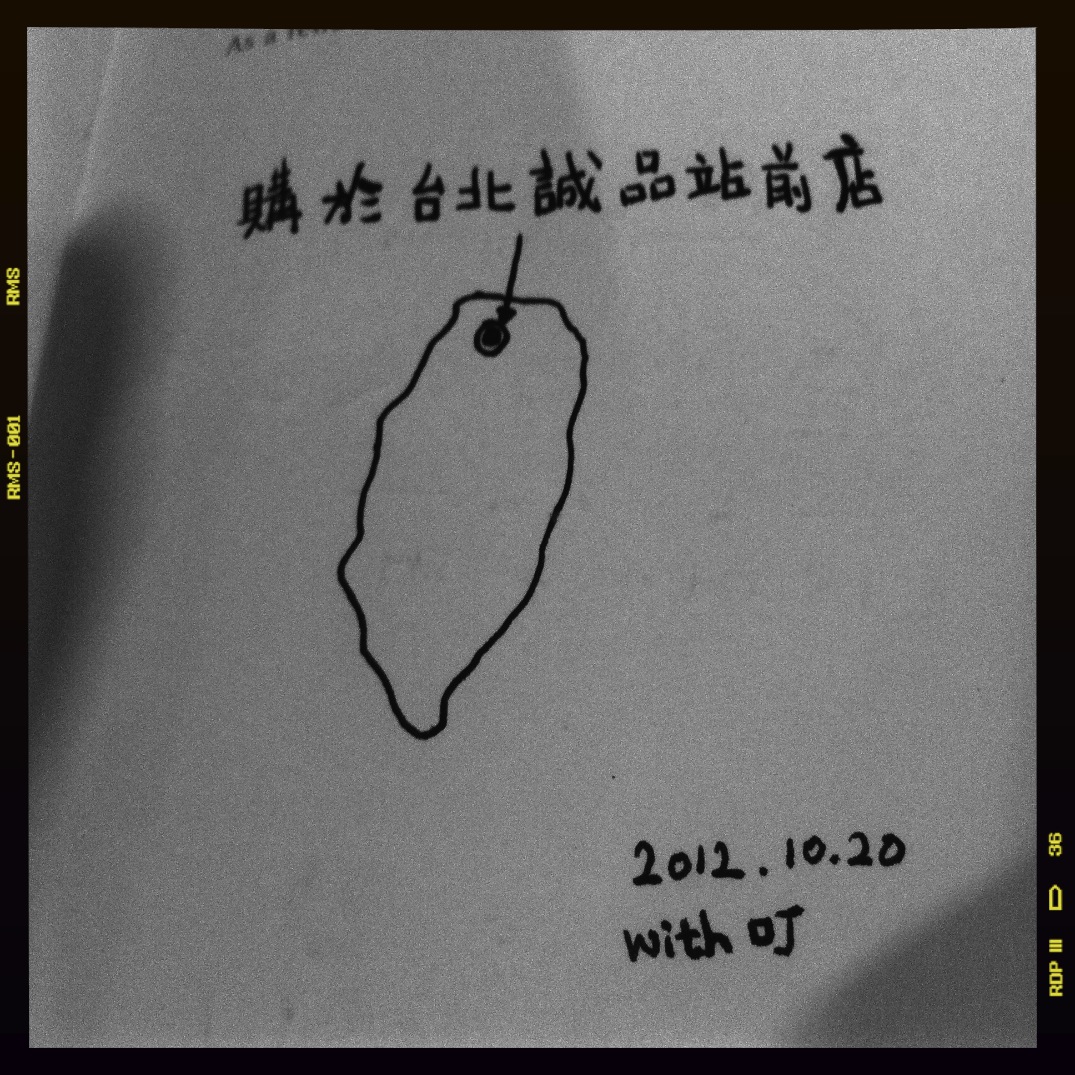 As a
購於台北誠品站前店
2012.10.20
with 叮
RMS
RMS-001
36
RDP III